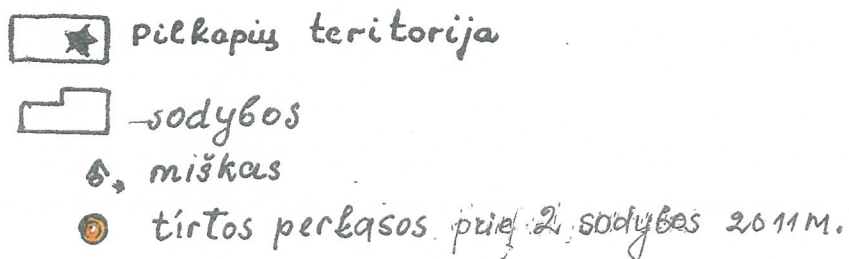 pilkapių teritorija
sodybos
miškas
tirtos perkasos prie 2 sodybos 2011 m.